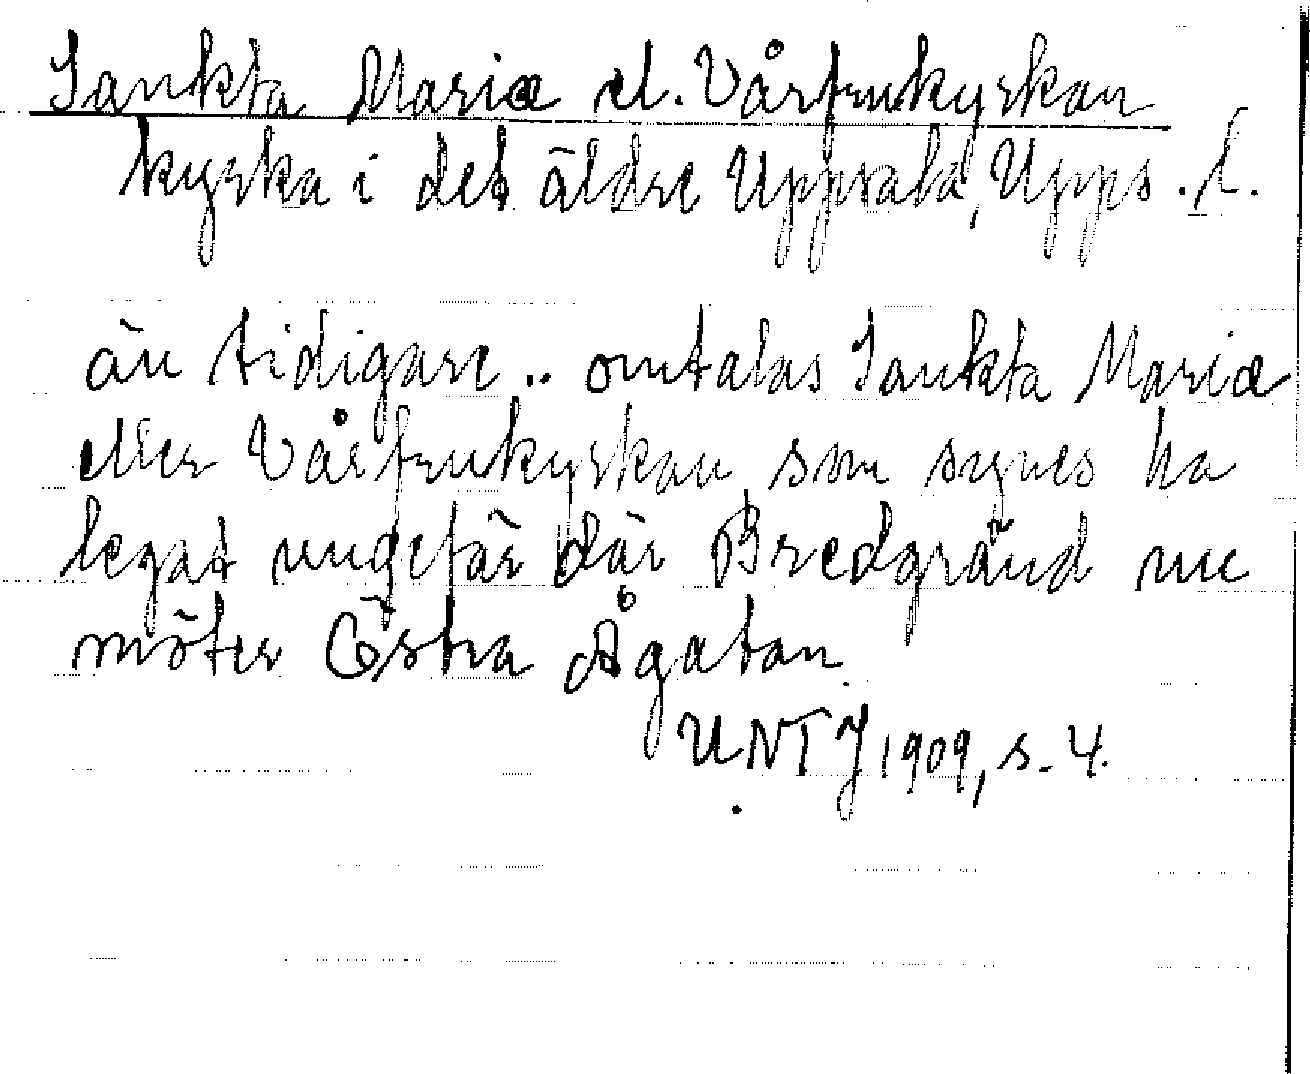 Sankta Mariæ el. Vårfrukyrkan
kyrka i det äldre Uppsala, Upps. l.
än tidigare .. omtalas Sankta Mariæ
eller Vårfrukyrkan, som synes ha
legat ungefär där Bredgränd nu
möter Östra Ågatan.
UNT J 1909, s. 4.